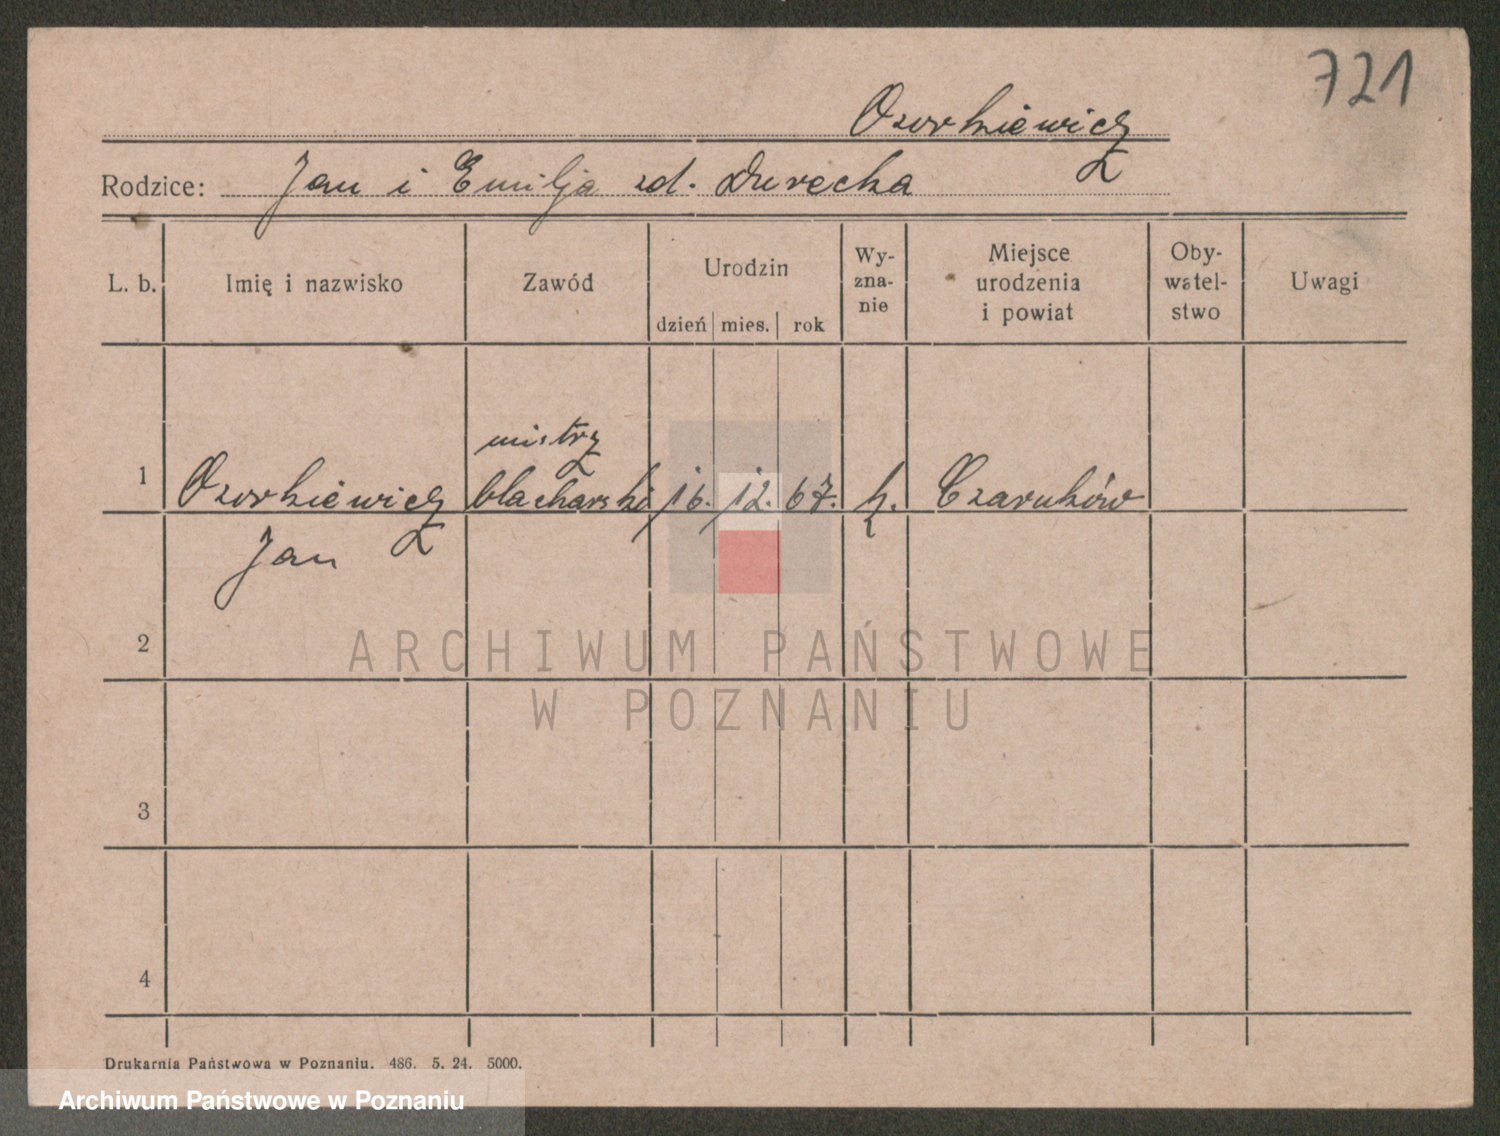 721
Ozorkiewicz
Rodzice: Jan i Emilja zd. Durecka
L. b. Imię i nazwisko Zawód Urodzin dzień mies. rok Wy-zna-nie Miejsce urodzenia i powiat Oby-watel-stwo Uwagi
mistrz
1 Ozorkiewicz blacharski 16. 12. 67. k. Czarnków
Jan
2
ARCHIWUM PAŃSTWOWE
W POZNANIU
3
4
Drukarnia Państwowa w Poznaniu. 486. 5. 24. 5000.
Archiwum Państwowe w Poznaniu